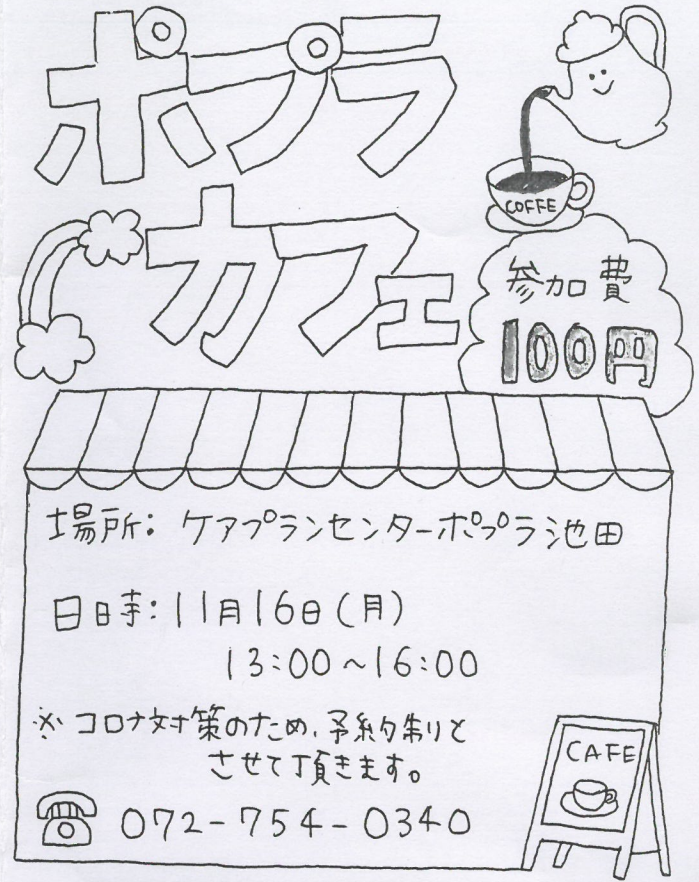 ポプラ
カフェ
COFFE
参加費
100円
場所: ケアプランセンターポプラ池田
日時: 11月16日(月)
13:00~16:00
※コロナ対策のため、予約制りと
させて頂きます。
CAFE
072-754-0340